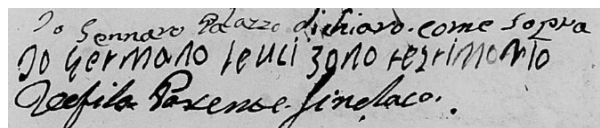 Io Gennaro Palazzo dichiaro come sopra
Io Germano feuci sono testimonio
Teofilo Parense Sindaco.